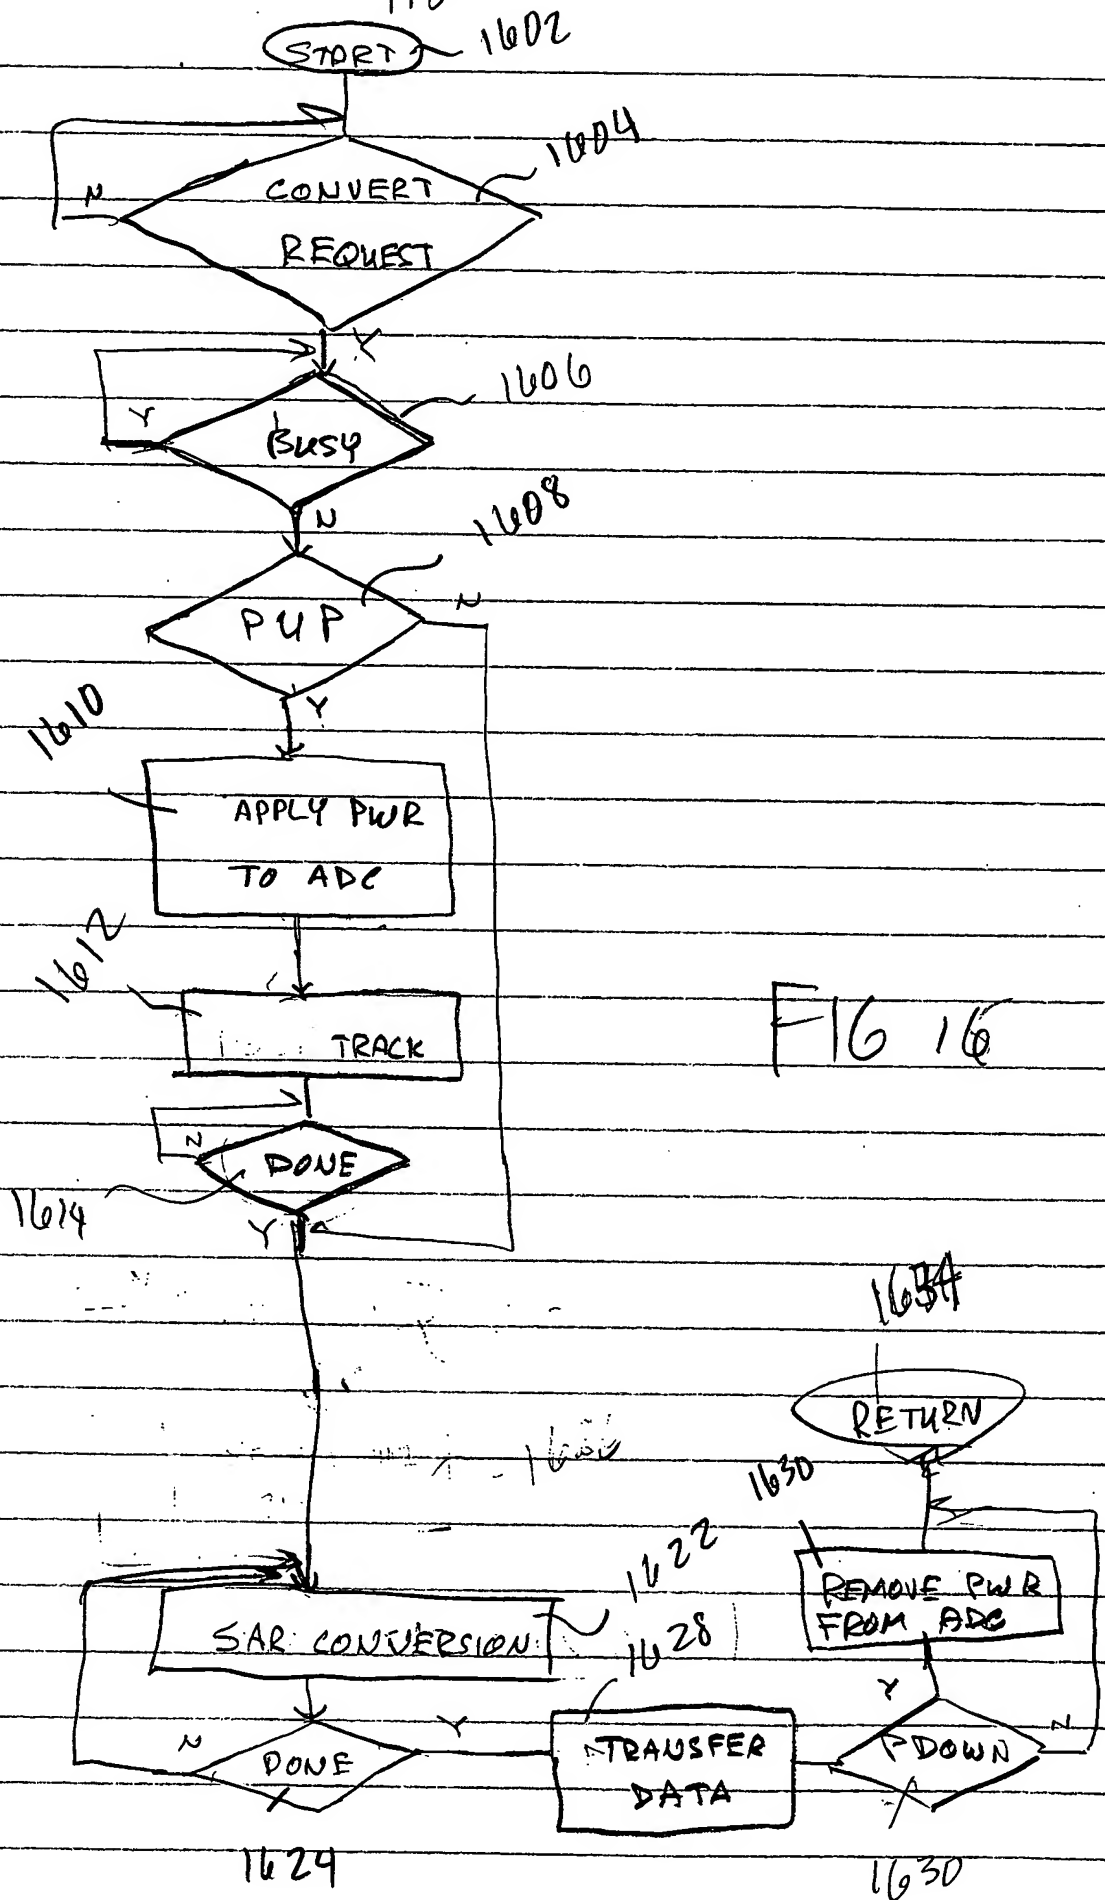 START
1602
1604
N
CONVERT
REQUEST
Y
1606
Y
BUSY
N
1608
PUP
N
Y
1610
APPLY PWR
TO ADC
1612
TRACK
FIG 16
N
DONE
1614
Y
1634
RETURN
1630
REMOVE PWR
FROM ADC
1622
SAR CONVERSION
1628
Y
N
DONE
Y
TRANSFER
DATA
PDOWN
N
1624
1630